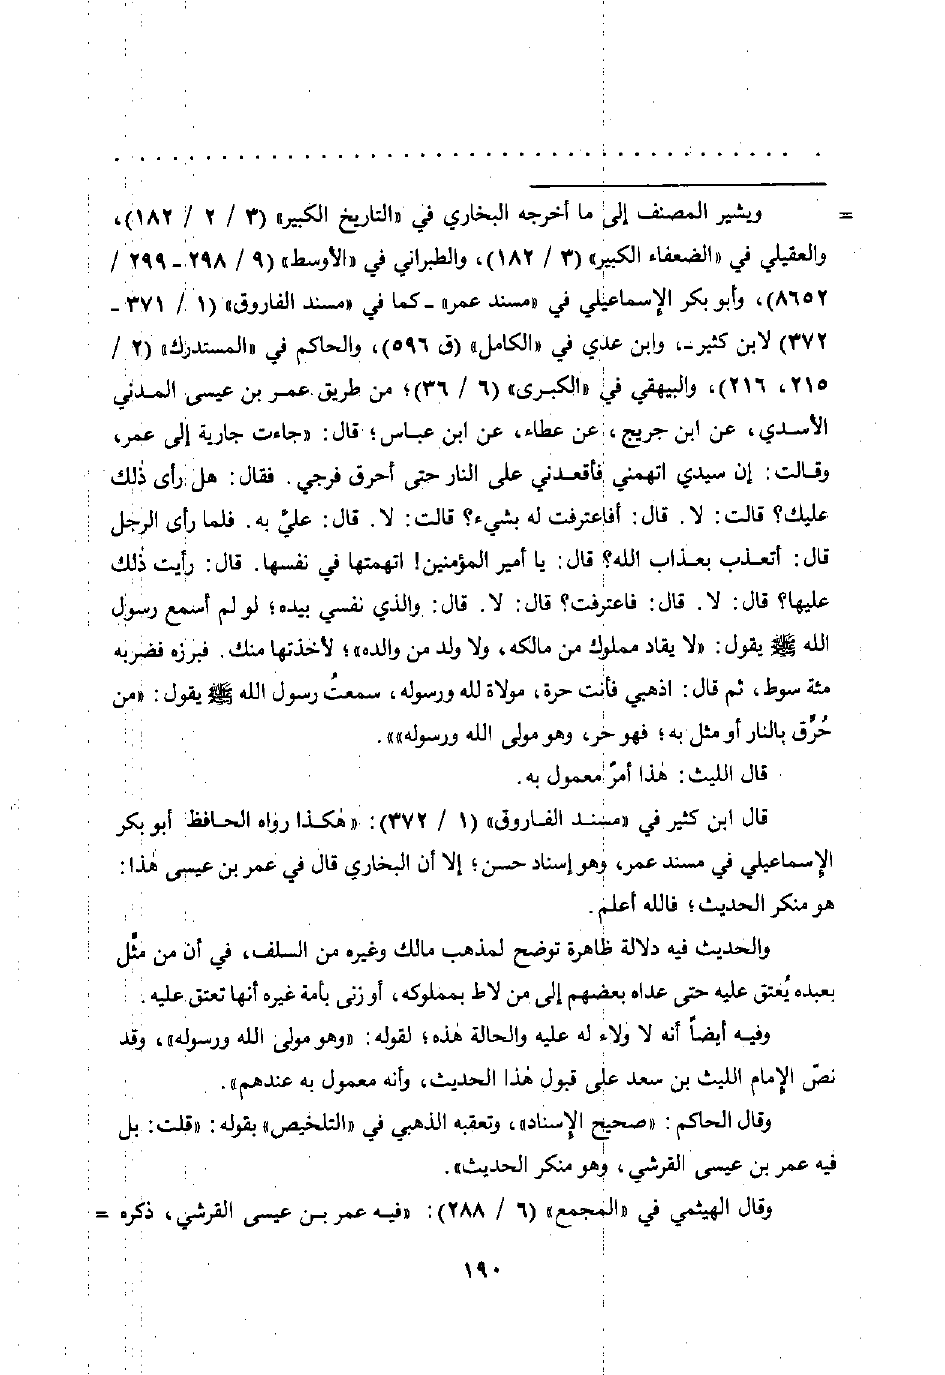 = ويشير المصنف إلى ما أخرجه البخاري في «التاريخ الكبير» (٣ / ٢ / ١٨٢)،
والعقيلي في «الضعفاء الكبير» (٣ / ١٨٢)، والطبراني في «الأوسط» (٩ / ٢٩٨ ـ ٢٩٩ /
٨٦٥٢)، وأبو بكر الإسماعيلي في «مسند عمر» ـ كما في «مسند الفاروق» (١ / ٣٧١ ـ
٣٧٢) لابن كثير ـ، وابن عدي في «الكامل» (ق ٥٩٦)، والحاكم في «المستدرك» (٢ /
٢١٥، ٢١٦)، والبيهقي في «الكبرى» (٦ / ٣٦)؛ من طريق عمر بن عيسى المدني
الأسدي، عن ابن جريج، عن عطاء، عن ابن عباس؛ قال: «جاءت جارية إلى عمر،
وقالت: إن سيدي اتهمني فأقعدني على النار حتى أحرق فرجي. فقال: هل رأى ذٰلك
عليك؟ قالت: لا. قال: أفاعترفت له بشيء؟ قالت: لا. قال: عليَّ به. فلما رأى الرجل
قال: أتعذب بعذاب الله؟ قال: يا أمير المؤمنين! اتهمتها في نفسها. قال: رأيت ذٰلك
عليها؟ قال: لا. قال: فاعترفت؟ قال: لا. قال: والذي نفسي بيده؛ لو لم أسمع رسول
الله ﷺ يقول: «لا يقاد مملوك من مالكه، ولا ولد من والده»؛ لأخذتها منك. فبرزه فضربه
مئة سوط، ثم قال: اذهبي فأنت حرة، مولاة لله ورسوله، سمعتُ رسول الله ﷺ يقول: «من
حُرِّق بالنار أو مثل به؛ فهو حر، وهو مولى الله ورسوله»».
قال الليث: هٰذا أمرٌ معمول به.
قال ابن كثير في «مسند الفاروق» (١ / ٣٧٢): «هٰكذا رواه الحافظ أبو بكر
الإسماعيلي في مسند عمر، وهو إسناد حسن؛ إلا أن البخاري قال في عمر بن عيسى هٰذا:
هو منكر الحديث؛ فالله أعلم.
والحديث فيه دلالة ظاهرة توضح لمذهب مالك وغيره من السلف، في أن من مثَّل
بعبده يُعتق عليه حتى عداه بعضهم إلى من لاط بمملوكه، أو زنى بأمة غيره أنها تعتق عليه.
وفيه أيضاً أنه لا ولاء له عليه والحالة هٰذه؛ لقوله: «وهو مولى الله ورسوله»، وقد
نصّ الإمام الليث بن سعد على قبول هٰذا الحديث، وأنه معمول به عندهم».
وقال الحاكم: «صحيح الإسناد»، وتعقبه الذهبي في «التلخيص» بقوله: «قلت: بل
فيه عمر بن عيسى القرشي، وهو منكر الحديث».
وقال الهيثمي في «المجمع» (٦ / ٢٨٨): «فيه عمر بن عيسى القرشي، ذكره =
١٩٠